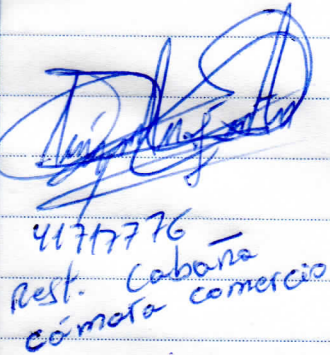 41717776
Rest. Cabaña
cámara comercio